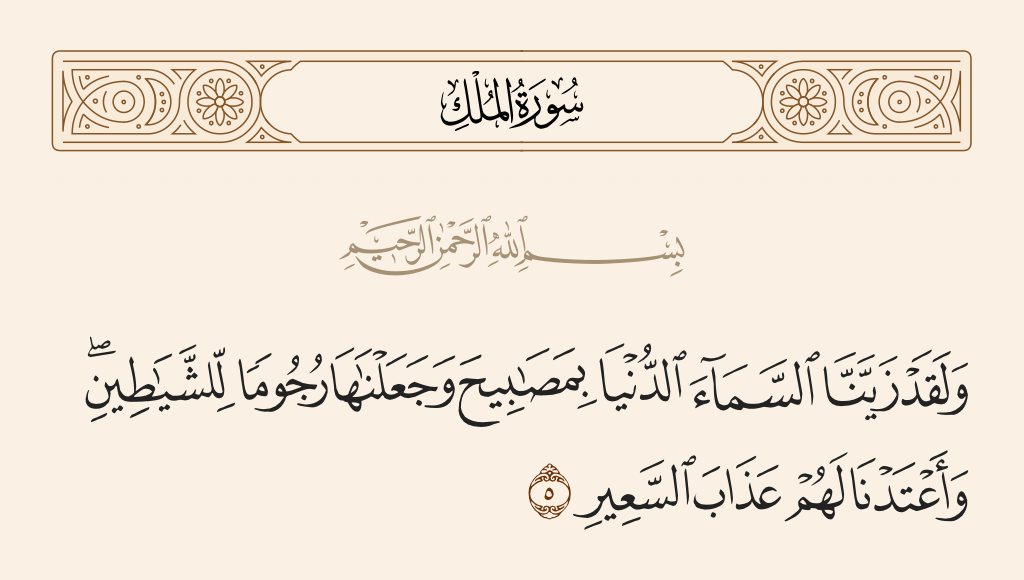 سُورَةُ الْمُلْكِ
بِسْمِ ٱللَّهِ ٱلرَّحْمَٰنِ ٱلرَّحِيمِ
وَلَقَدْ زَيَّنَّا ٱلسَّمَآءَ ٱلدُّنْيَا بِمَصَٰبِيحَ وَجَعَلْنَٰهَا رُجُومًا لِّلشَّيَٰطِينِ ۖ
وَأَعْتَدْنَا لَهُمْ عَذَابَ ٱلسَّعِيرِ ٥